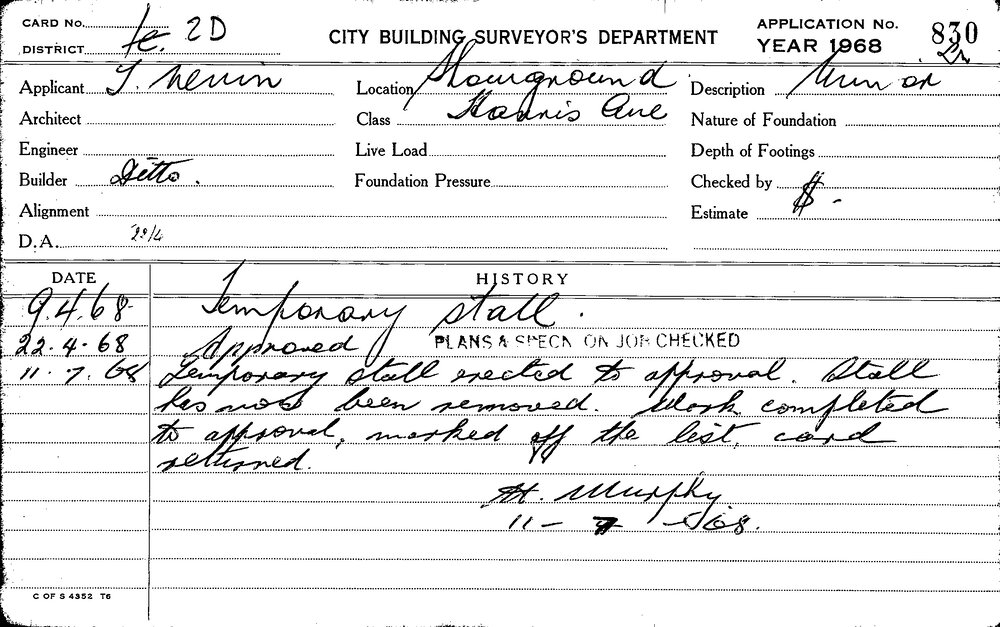 CARD No.
DISTRICT 2D
CITY BUILDING SURVEYOR'S DEPARTMENT
APPLICATION No. 830
YEAR 1968
Applicant T. Nevin
Location Showground
Description Minor
Architect
Class Harris Ave
Nature of Foundation
Engineer
Live Load
Depth of Footings
Builder Ditto.
Foundation Pressure
Checked by
Alignment
Estimate $ -
D.A. 22/4
DATE
HISTORY
9.4.68 Temporary stall.
22.4.68 Approved PLANS & SPECN ON JOB CHECKED
11.7.68 Temporary stall erected to approval. Stall
has now been removed. Work completed
to approval, marked off the list, card
returned.
H. Murphy
11-7-68.
C OF S 4352 T6